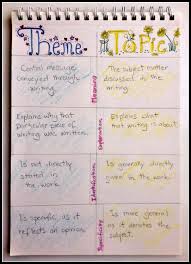 Theme
Topic
Central message
conveyed through
writing.
Meaning
The subject matter
discussed in the
writing.
Explains why that
particular piece of
writing was written.
Explanation
Explains what
that writing is about.
Is not directly
stated in
the work.
Identification
Is generally directly
given in the work.
Is specific, as it
reflects an opinion.
Specificity
Is more general
as it denotes the
subject.